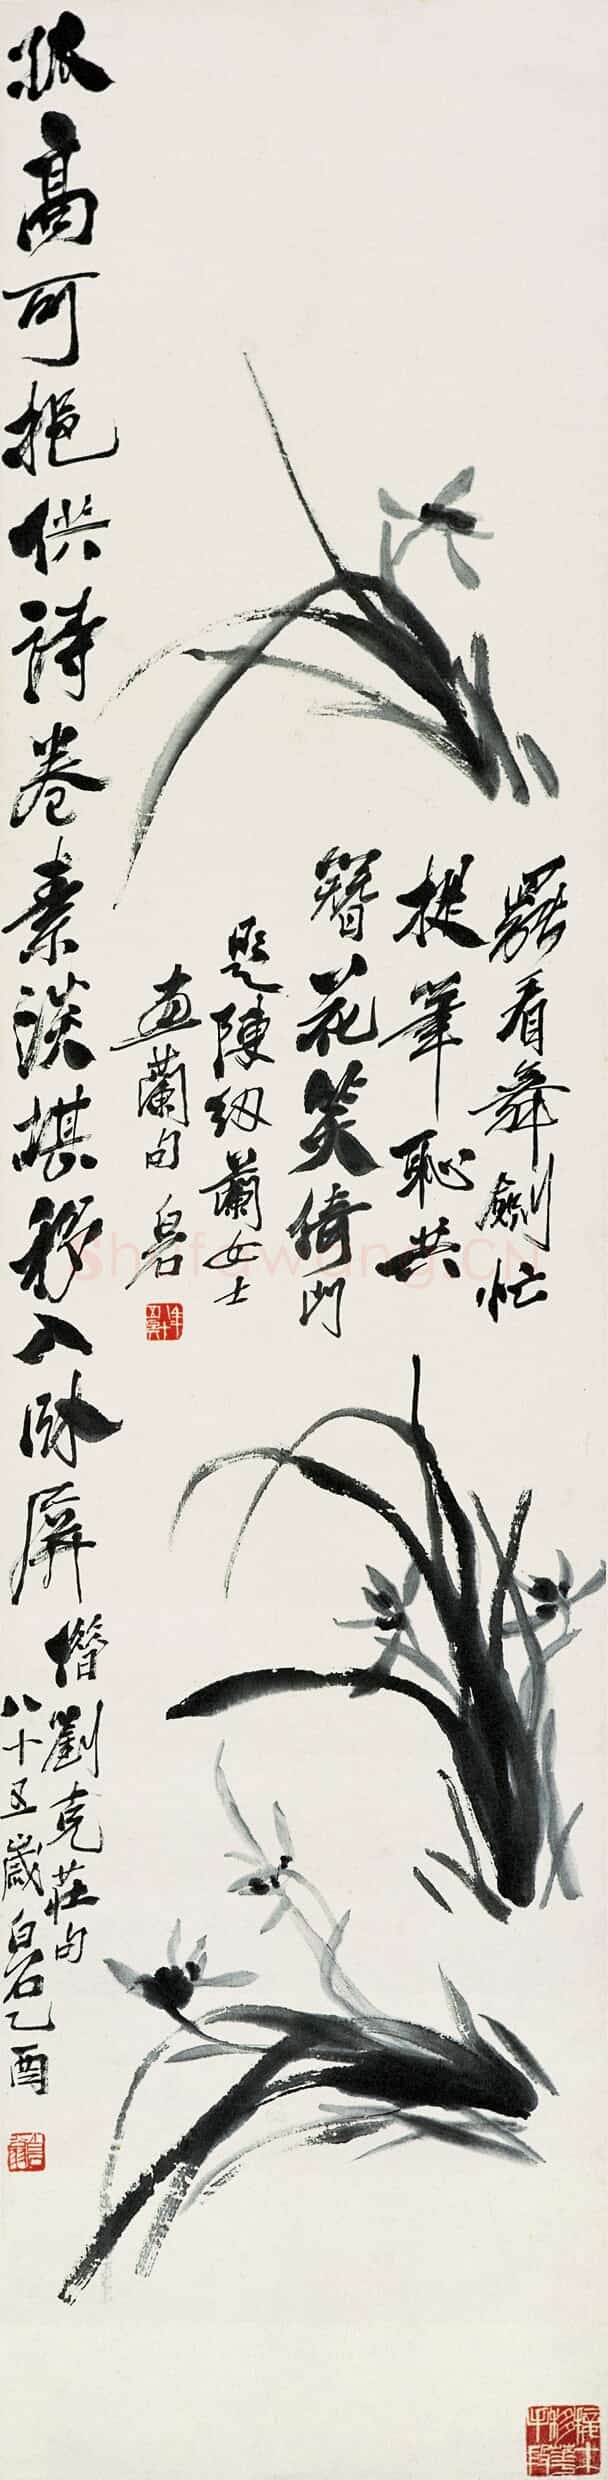 罷看舞劍忙
提筆恥共
簪花笑倚門
題陳紉蘭女士
畫蘭句 白石
孤高可挹供詩卷素淡堪移入臥屏
借劉克莊句
八十五歲白石乙酉
接木移花手段
Shufawang.CN